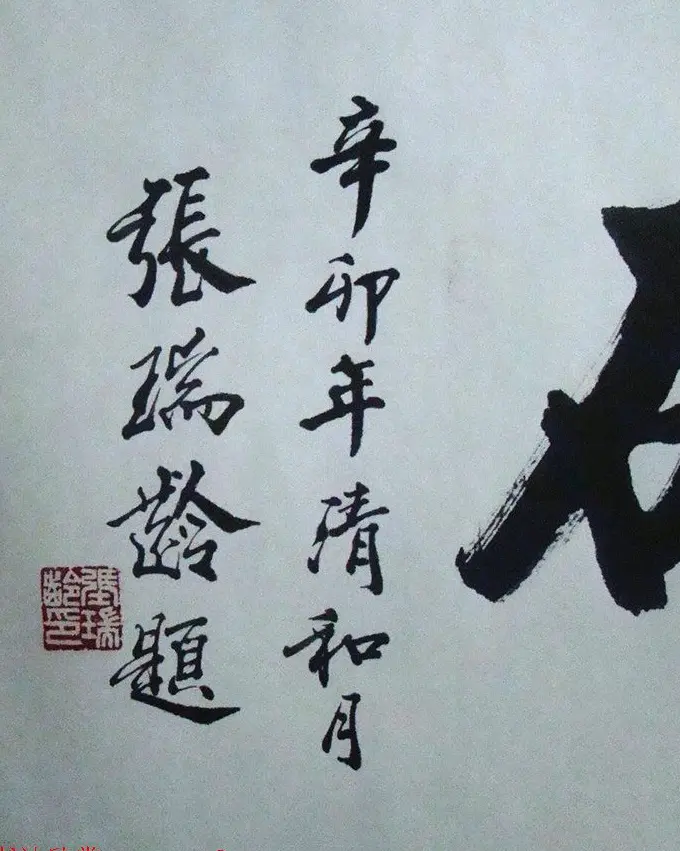 辛卯年清和月
張瑞齡題
張瑞齡印